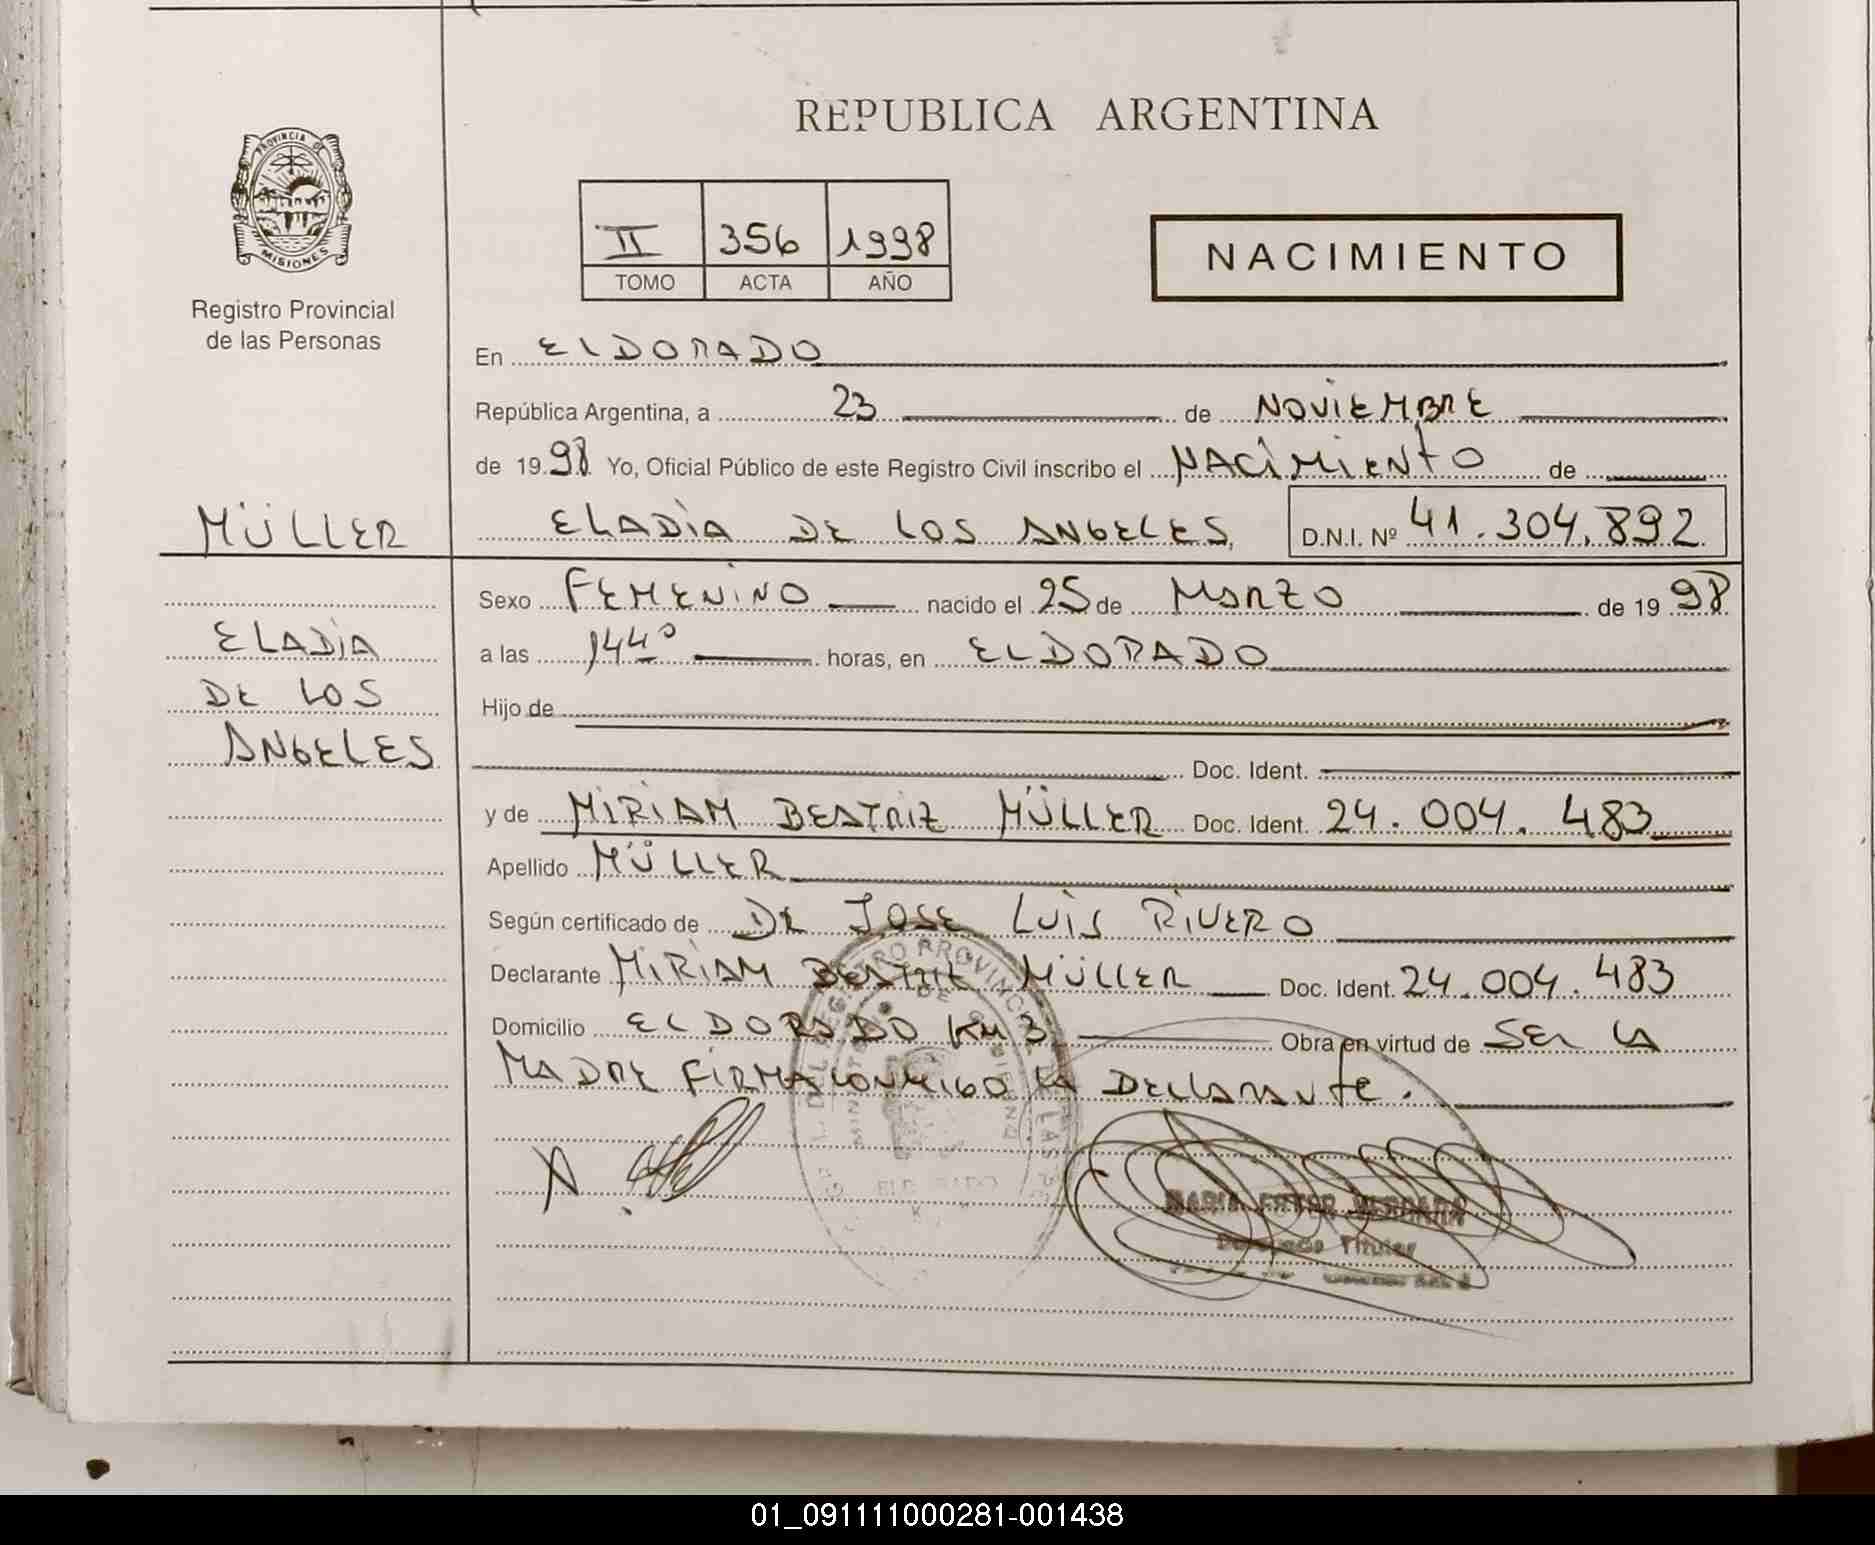 REPUBLICA ARGENTINA
PROVINCIA DE
MISIONES
Registro Provincial
de las Personas
II 356 1998
TOMO ACTA AÑO
NACIMIENTO
En ELDORADO
República Argentina, a 23 de NOVIEMBRE
de 1998 Yo, Oficial Público de este Registro Civil inscribo el NACIMIENTO de
MÜLLER
ELADIA DE LOS ANGELES, D.N.I. Nº 41.304.892
Sexo FEMENINO nacido el 25 de MARZO de 1998
ELADIA
DE LOS
ANGELES
a las 14 40 horas, en ELDORADO
Hijo de
Doc. Ident.
y de MIRIAM BEATRIZ MÜLLER Doc. Ident. 24.004.483
Apellido MÜLLER
Según certificado de DR JOSE LUIS RIVERO
Declarante MIRIAM BEATRIZ MÜLLER Doc. Ident. 24.004.483
Domicilio ELDORADO KM 3 Obra en virtud de SER LA
MADRE FIRMA CONMIGO LA DECLARANTE.
REGISTRO PROVINCIAL DE LAS
Titular
01_091111000281-001438